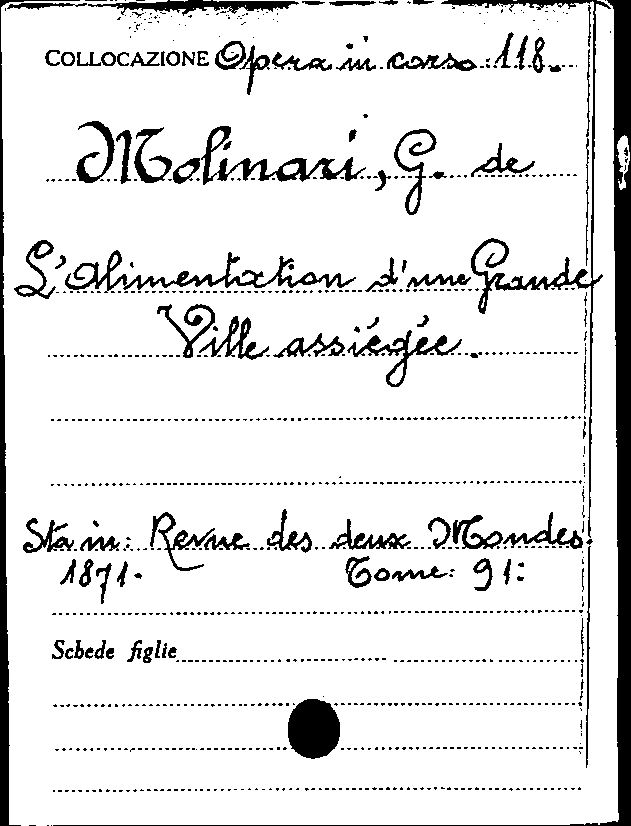 COLLOCAZIONE Opera in corso 118.
Molinari, G. de
L'Alimentation d'une Grande
Ville assiégée.
Sta in: Revue des deux Mondes.
1871. Tome: 91:
Schede figlie